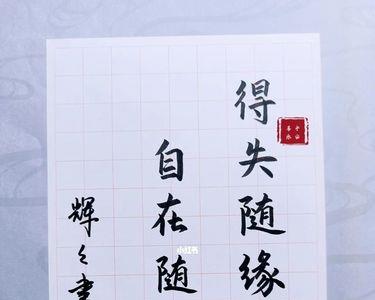 得失随缘
自在随
辉之書
小红书